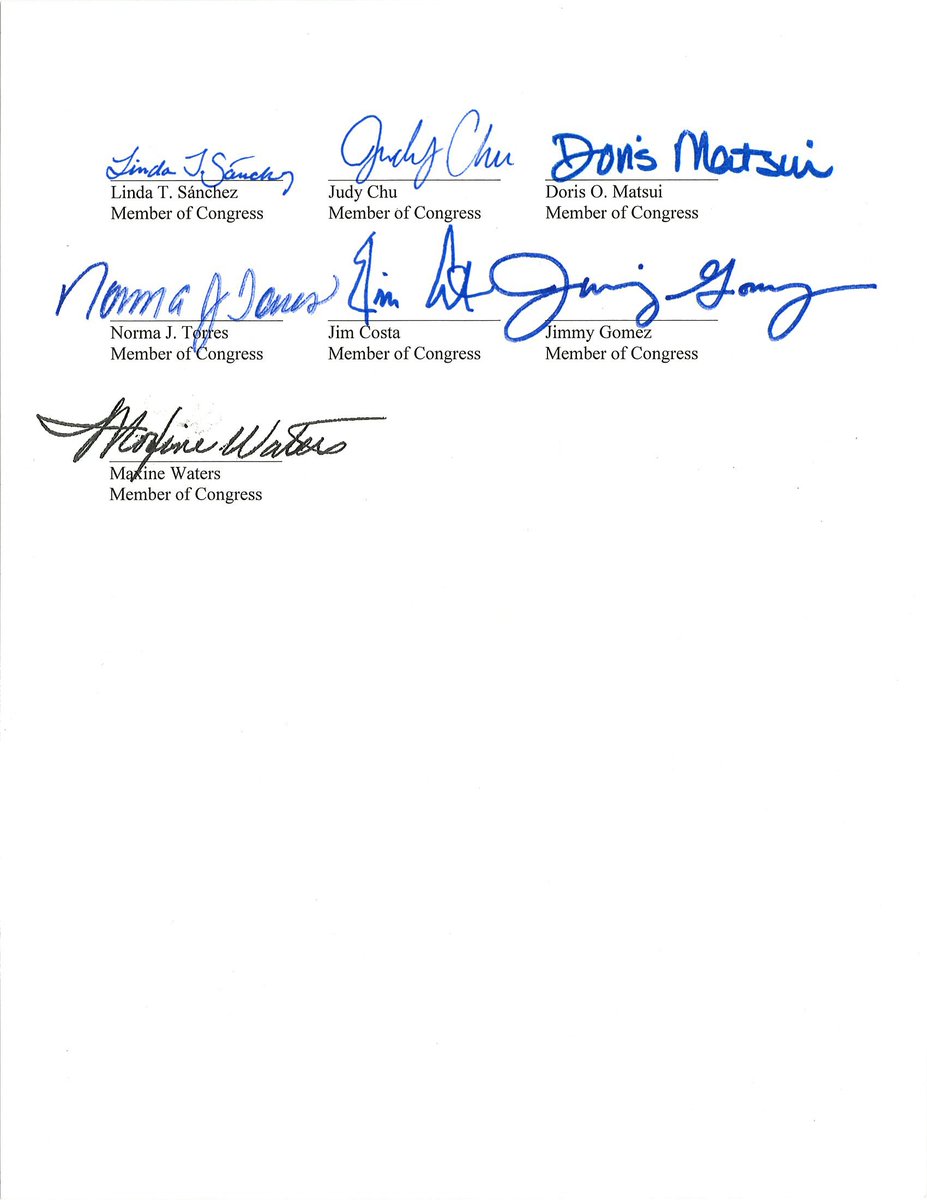 Linda T. Sánchez Judy Chu Doris Matsui
Linda T. Sánchez Judy Chu Doris O. Matsui
Member of Congress Member of Congress Member of Congress
Norma J Torres Jim Costa Jimmy Gomez
Norma J. Torres Jim Costa Jimmy Gomez
Member of Congress Member of Congress Member of Congress
Maxine Waters
Maxine Waters
Member of Congress